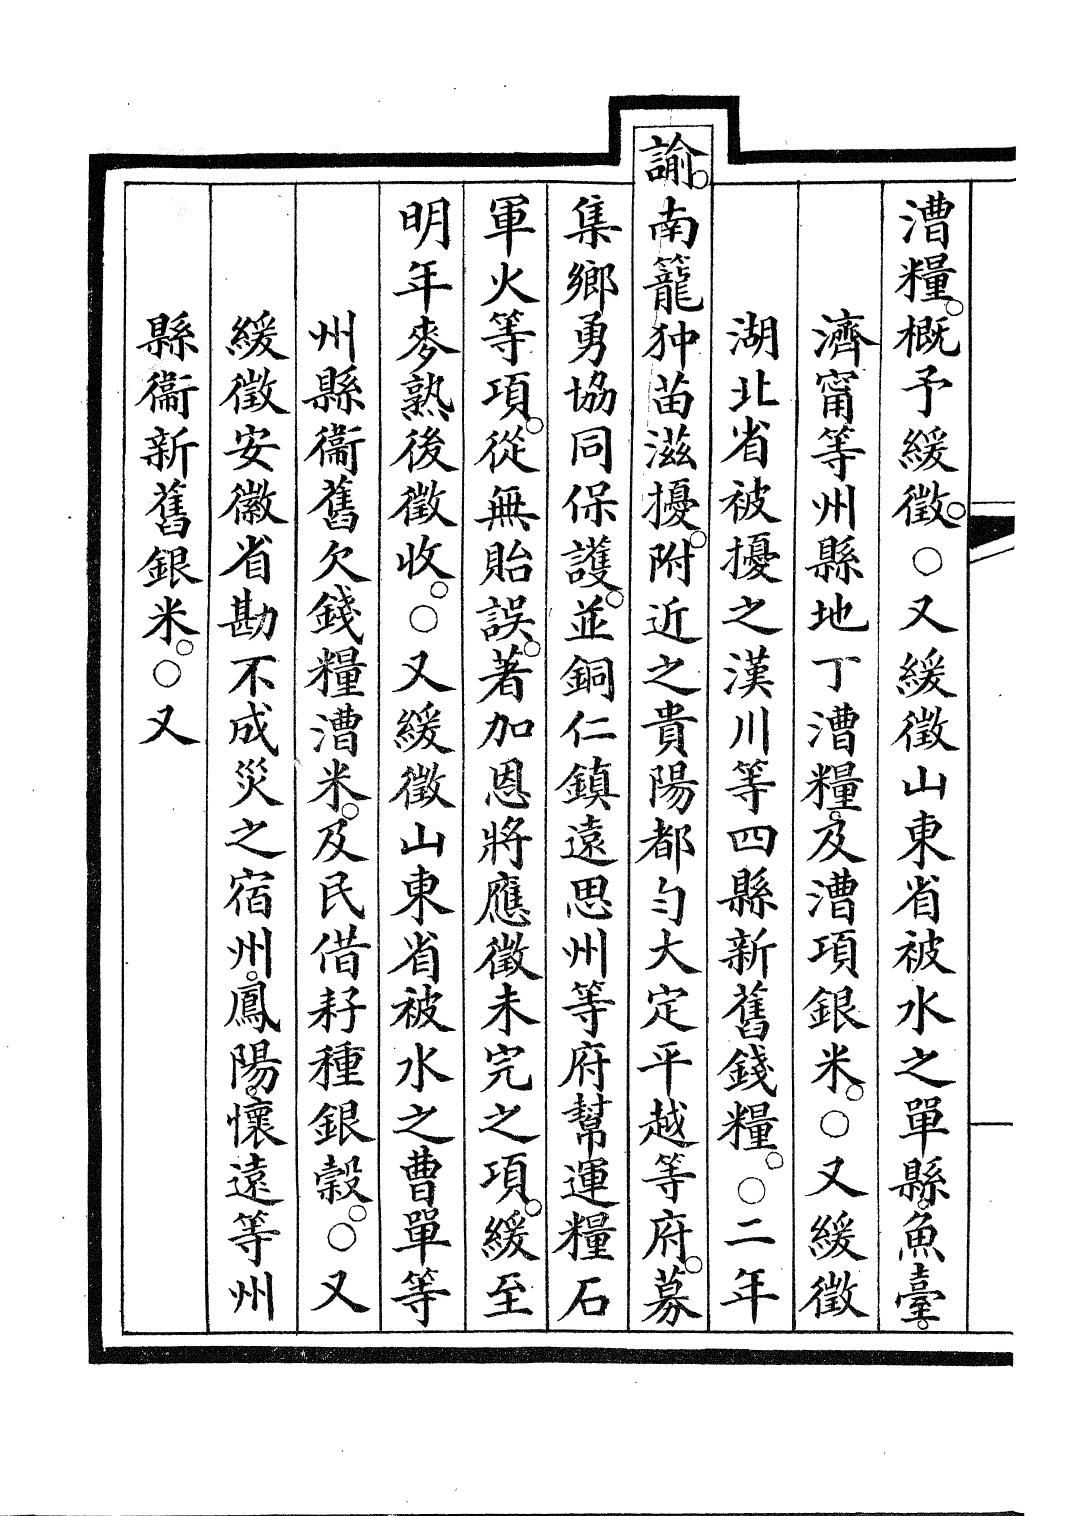 漕糧。概予緩徵。○又緩徵山東省被水之單縣。魚臺。
濟甯等州縣地丁漕糧。及漕項銀米。○又緩徵
湖北省被擾之漢川等四縣新舊錢糧。○二年
諭。南籠狆苗滋擾。附近之貴陽都勻大定平越等府。募
集鄉勇協同保護。並銅仁鎮遠思州等府幫運糧石
軍火等項。從無貽誤。著加恩將應徵未完之項。緩至
明年麥熟後徵收。○又緩徵山東省被水之曹單等
州縣衞舊欠錢糧漕米。及民借耔種銀穀。○又
緩徵安徽省勘不成災之宿州。鳳陽。懷遠等州
縣衞新舊銀米。○又